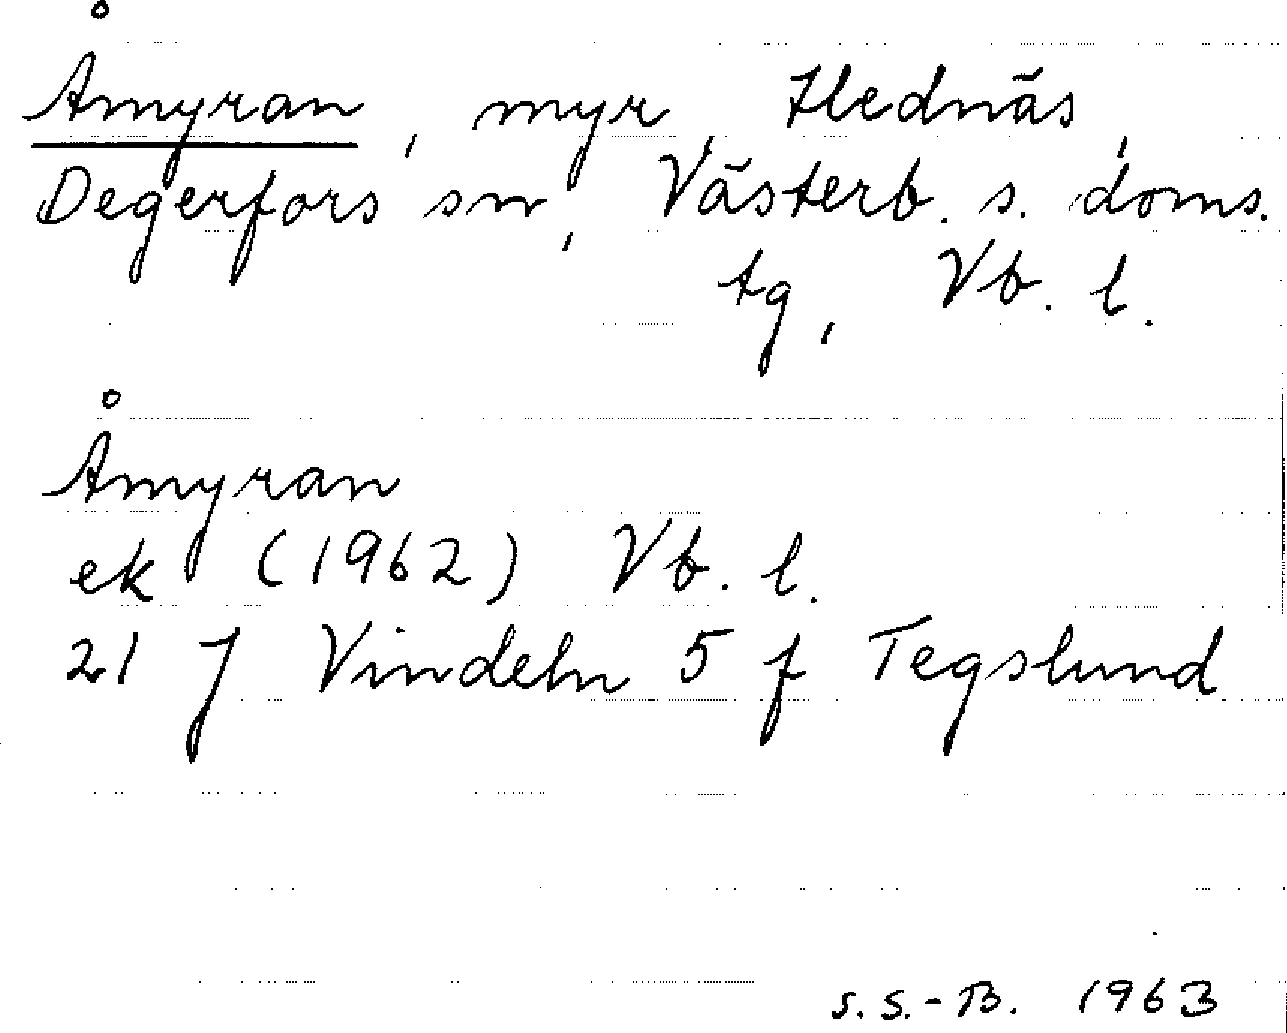 Åmyran, myr, Hednäs,
Degerfors sn, Västerb. s. doms.
tg, Vb. l.
Åmyran
ek (1962) Vb. l.
21 J Vindeln 5 f Tegslund
S. S.-B. 1963